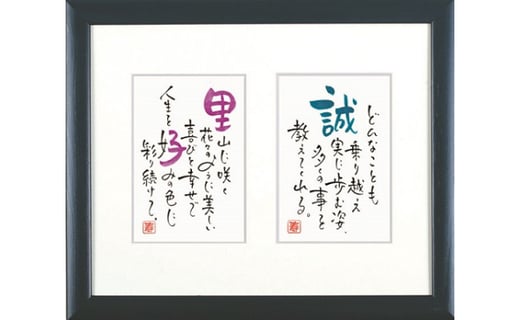 どんなことも
乗り越え
誠実に歩む姿、
多くの事を
教えてくれる。
里山に咲く
花々のように美しい
喜びと幸せで
人生を好みの色に
彩り続けて。